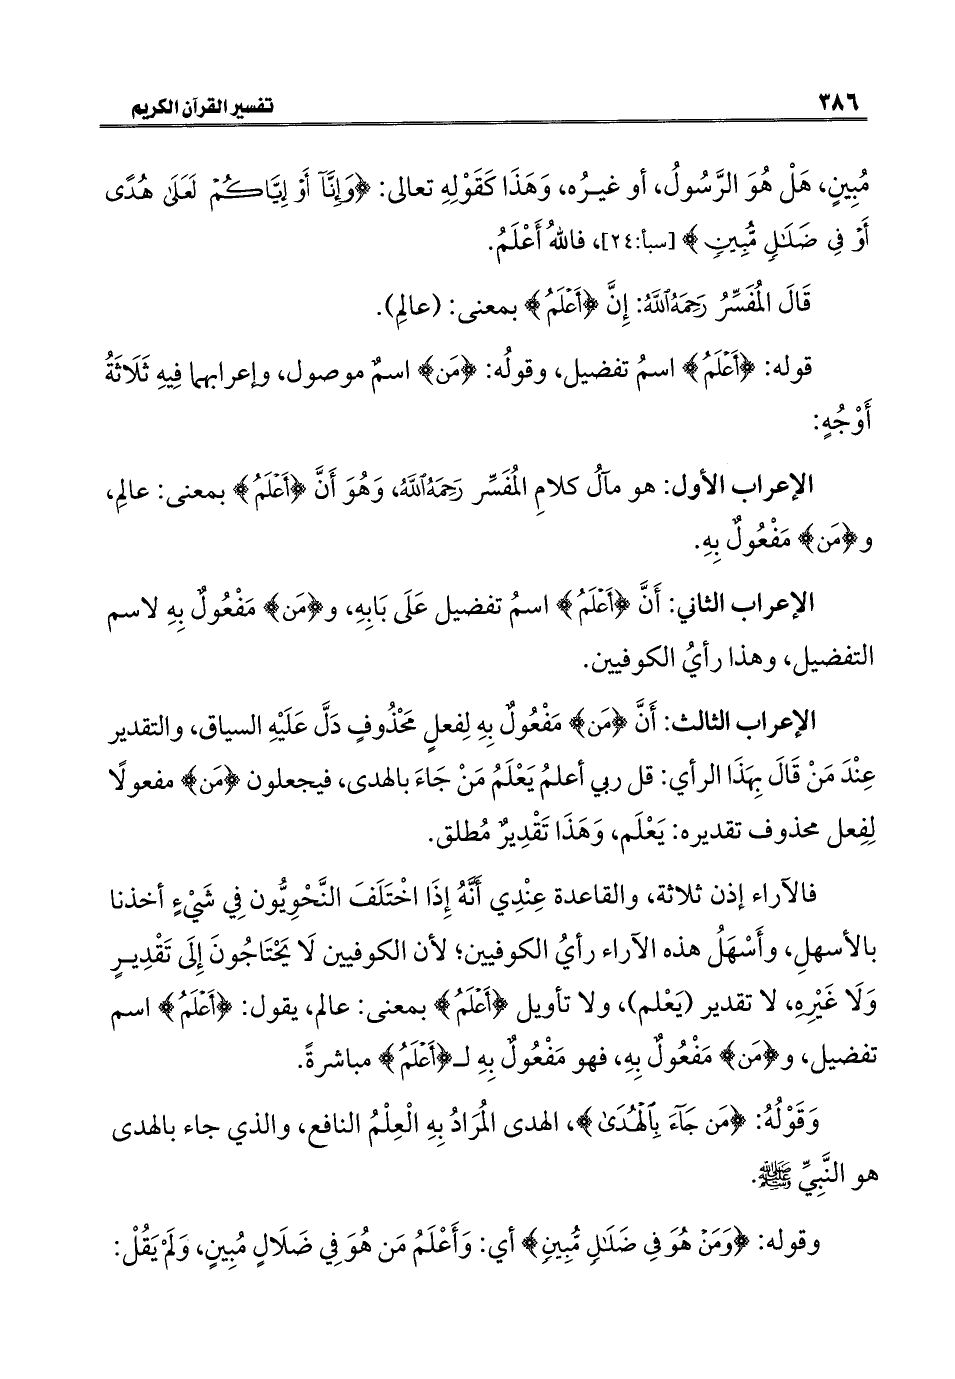 ٣٨٦
تفسير القرآن الكريم
مُبِينٍ، هَلْ هُوَ الرَّسُولُ، أو غيرُه، وَهَذَا كَقَوْلِهِ تعالى: ﴿وَإِنَّآ أَوْ إِيَّاكُمْ لَعَلَىٰ هُدًى
أَوْ فِي ضَلَٰلٍ مُّبِينٍ﴾ [سبأ:٢٤]، فاللهُ أَعْلَمُ.
قَالَ المُفَسِّرُ رَحِمَهُ ٱللَّهُ: إِنَّ ﴿أَعْلَمُ﴾ بمعنى: (عالِم).
قوله: ﴿أَعْلَمُ﴾ اسمُ تفضيل، وقولُه: ﴿مَن﴾ اسمٌ موصول، وإعرابهما فِيهِ ثَلَاثَةُ
أَوْجُهٍ:
الإعراب الأول: هو مآلُ كلامِ المُفَسِّر رَحِمَهُ ٱللَّهُ، وَهُوَ أَنَّ ﴿أَعْلَمُ﴾ بمعنى: عالِم،
و﴿مَن﴾ مَفْعُولٌ بِهِ.
الإعراب الثاني: أَنَّ ﴿أَعْلَمُ﴾ اسمُ تفضيل عَلَى بَابِهِ، و﴿مَن﴾ مَفْعُولٌ بِهِ لاسم
التفضيل، وهذا رأيُ الكوفيين.
الإعراب الثالث: أَنَّ ﴿مَن﴾ مَفْعُولٌ بِهِ لِفعلٍ مَحْذُوفٍ دَلَّ عَلَيْهِ السياق، والتقدير
عِنْدَ مَنْ قَالَ بِهَذَا الرأي: قل ربي أعلمُ يَعْلَمُ مَنْ جَاءَ بالهدى، فيجعلون ﴿مَن﴾ مفعولًا
لِفِعل محذوف تقديره: يَعْلَم، وَهَذَا تَقْدِيرٌ مُطلق.
فالآراء إذن ثلاثة، والقاعدة عِنْدِي أَنَّهُ إِذَا اخْتَلَفَ النَّحْوِيُّون فِي شَيْءٍ أخذنا
بالأسهلِ، وأَسْهَلُ هذه الآراء رأيُ الكوفيين؛ لأن الكوفيين لَا يَحْتَاجُونَ إِلَى تَقْدِيرٍ
وَلَا غَيْرِهِ، لا تقدير (يَعْلم)، ولا تأويل ﴿أَعْلَمُ﴾ بمعنى: عالم، يقول: ﴿أَعْلَمُ﴾ اسم
تفضيل، و﴿مَن﴾ مَفْعُولٌ بِهِ، فهو مَفْعُولٌ بِهِ لـ﴿أَعْلَمُ﴾ مباشرةً.
وَقَوْلُهُ: ﴿مَن جَآءَ بِٱلْهُدَىٰ﴾، الهدى المُرَادُ بِهِ الْعِلْمُ النافع، والذي جاء بالهدى
هو النَّبِيِّ ﷺ.
وقوله: ﴿وَمَنْ هُوَ فِي ضَلَٰلٍ مُّبِينٍ﴾ أي: وَأَعْلَمُ مَن هُوَ فِي ضَلَالٍ مُبِينٍ، وَلَمْ يَقُلْ: